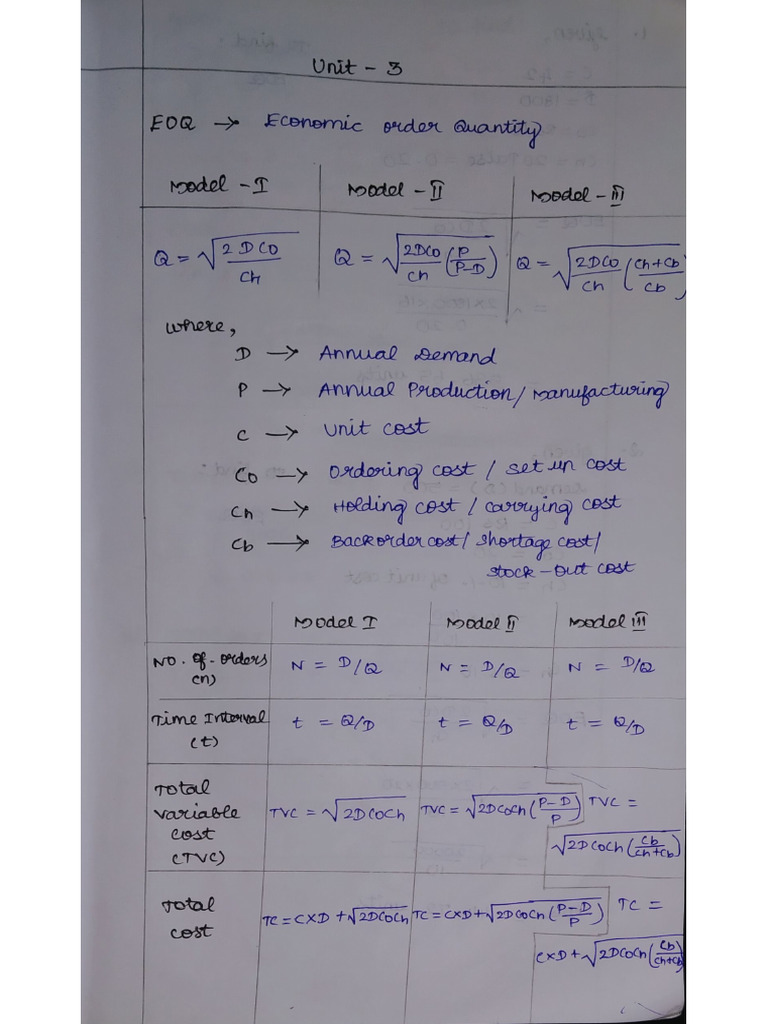 Unit - 3
EOQ → Economic order Quantity
Model - I Model - II Model - III
Q = √(2DCo/Ch) Q = √(2DCo/Ch (P/P-D)) Q = √(2DCo/Ch (Ch+Cb/Cb))
where,
D → Annual Demand
P → Annual Production/Manufacturing
C → Unit cost
Co → Ordering cost / set up cost
Ch → Holding cost / carrying cost
Cb → Backorder cost/ shortage cost/
stock-out cost
Model I Model II Model III
No. of. orders N = D/Q N = D/Q N = D/Q
(n)
Time Interval t = Q/D t = Q/D t = Q/D
(t)
Total
variable TVC = √2DCoCh TVC = √2DCoCh (P-D/P) TVC =
cost √2DCoCh (Cb/Ch+Cb)
(TVC)
Total TC = C×D + √2DCoCh TC = C×D + √2DCoCh (P-D/P) TC =
cost C×D + √2DCoCh (Cb/Ch+Cb)